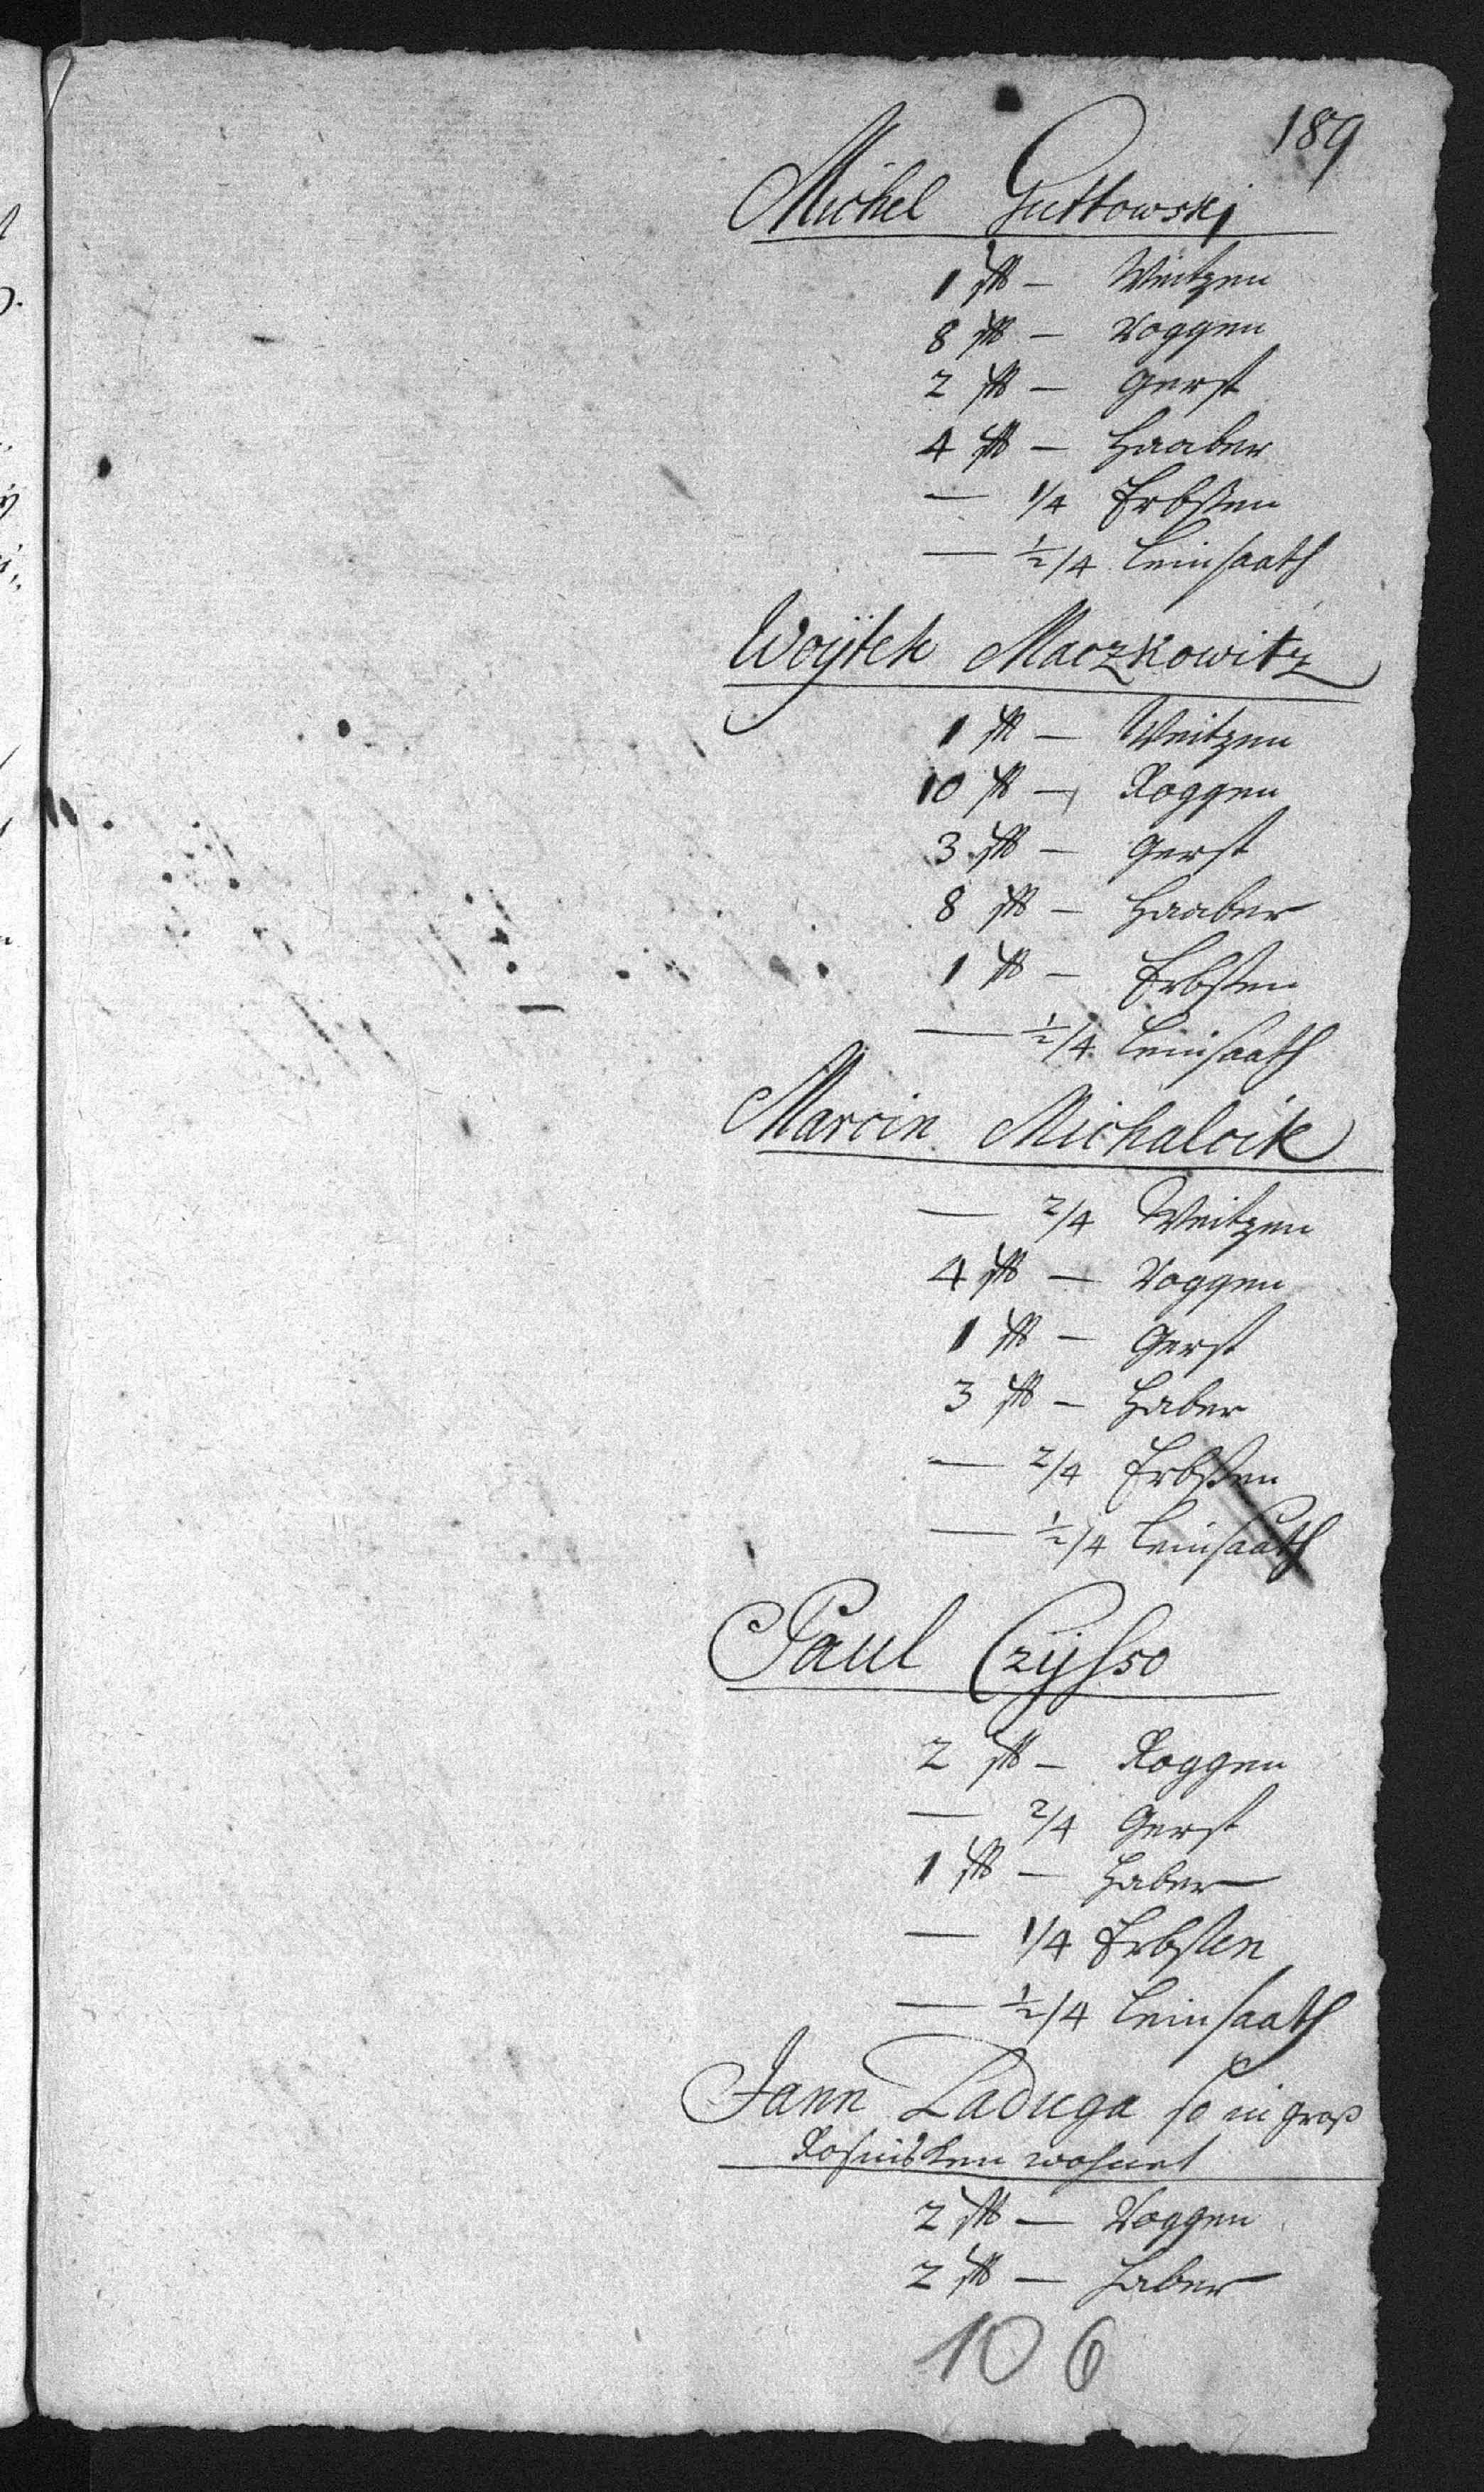 189
Michel Guttowski
1 ß — Weitzen
8 ß — Roggen
2 ß — Gerst
4 ß — Haaber
— 1/4 Erbßen
— ½/4 Leinsaath
Woÿtek Maczkowitz
1 ß — Weitzen
10 ß — Roggen
3 ß — Gerst
8 ß — Haaber
1 ß — Erbsten
— ½/4 Leinsaath
Marcin Michalcik
— 2/4 Weitzen
4 ß — Roggen
1 ß — Gerst
3 ß — Haber
— 2/4 Erbßen
— ½/4 Leinsaath
Paul Czÿsso
2 ß — Roggen
— 2/4 Gerst
1 ß — Haber
— 1/4 Erbsten
— ½/4 Leinsaath
Jann Laduga so in groß
Rosinsken wohnet
2 ß — Roggen
2 ß — Haber
106